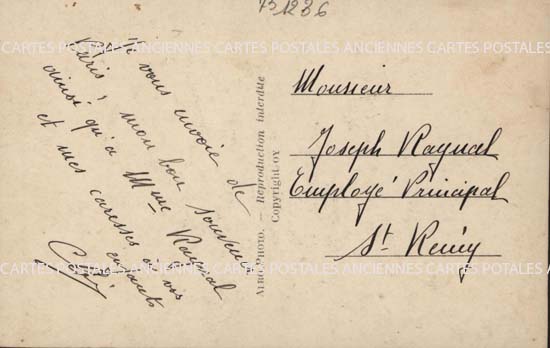 73 1236
Je vous envoie de
Paris, mon bon souvenir
ainsi qu'à Mme Raynal
et mes caresses à vos enfants
AIRCO PHOTO. — Reproduction interdite
Copyright by
Monsieur
Joseph Raynal
Employé Principal
St Remy
CARTES POSTALES ANCIENNES CARTES POSTALES ANCIENNES CARTES POSTALES
CARTES POSTALES ANCIENNES CARTES POSTALES ANCIENNES CARTES POSTALES